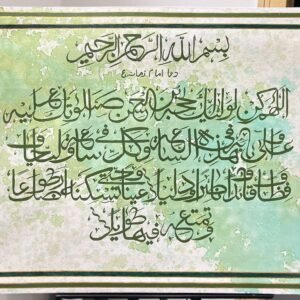 بسم الله الرحمن الرحیم
دعا امام زمان ع
اللهم كن لولیك الحجة بن الحسن صلواتك علیه
و علی آبائه فی هذه الساعة و فی كل ساعة ولیا و حافظا
و قائدا و ناصرا و دلیلا و عینا حتی تسكنه ارضك طوعا
و تمتعه فیها طویلا